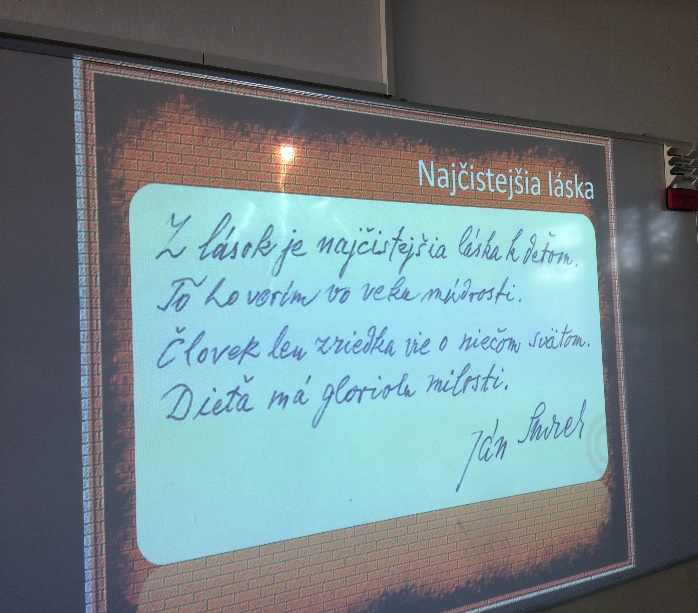 Najčistejšia láska
Z lások je najčistejšia láska k deťom.
To hovorím vo veku múdrosti.
Človek len zriedka vie o niečom svätom.
Dieťa má gloriolu milosti.
Ján